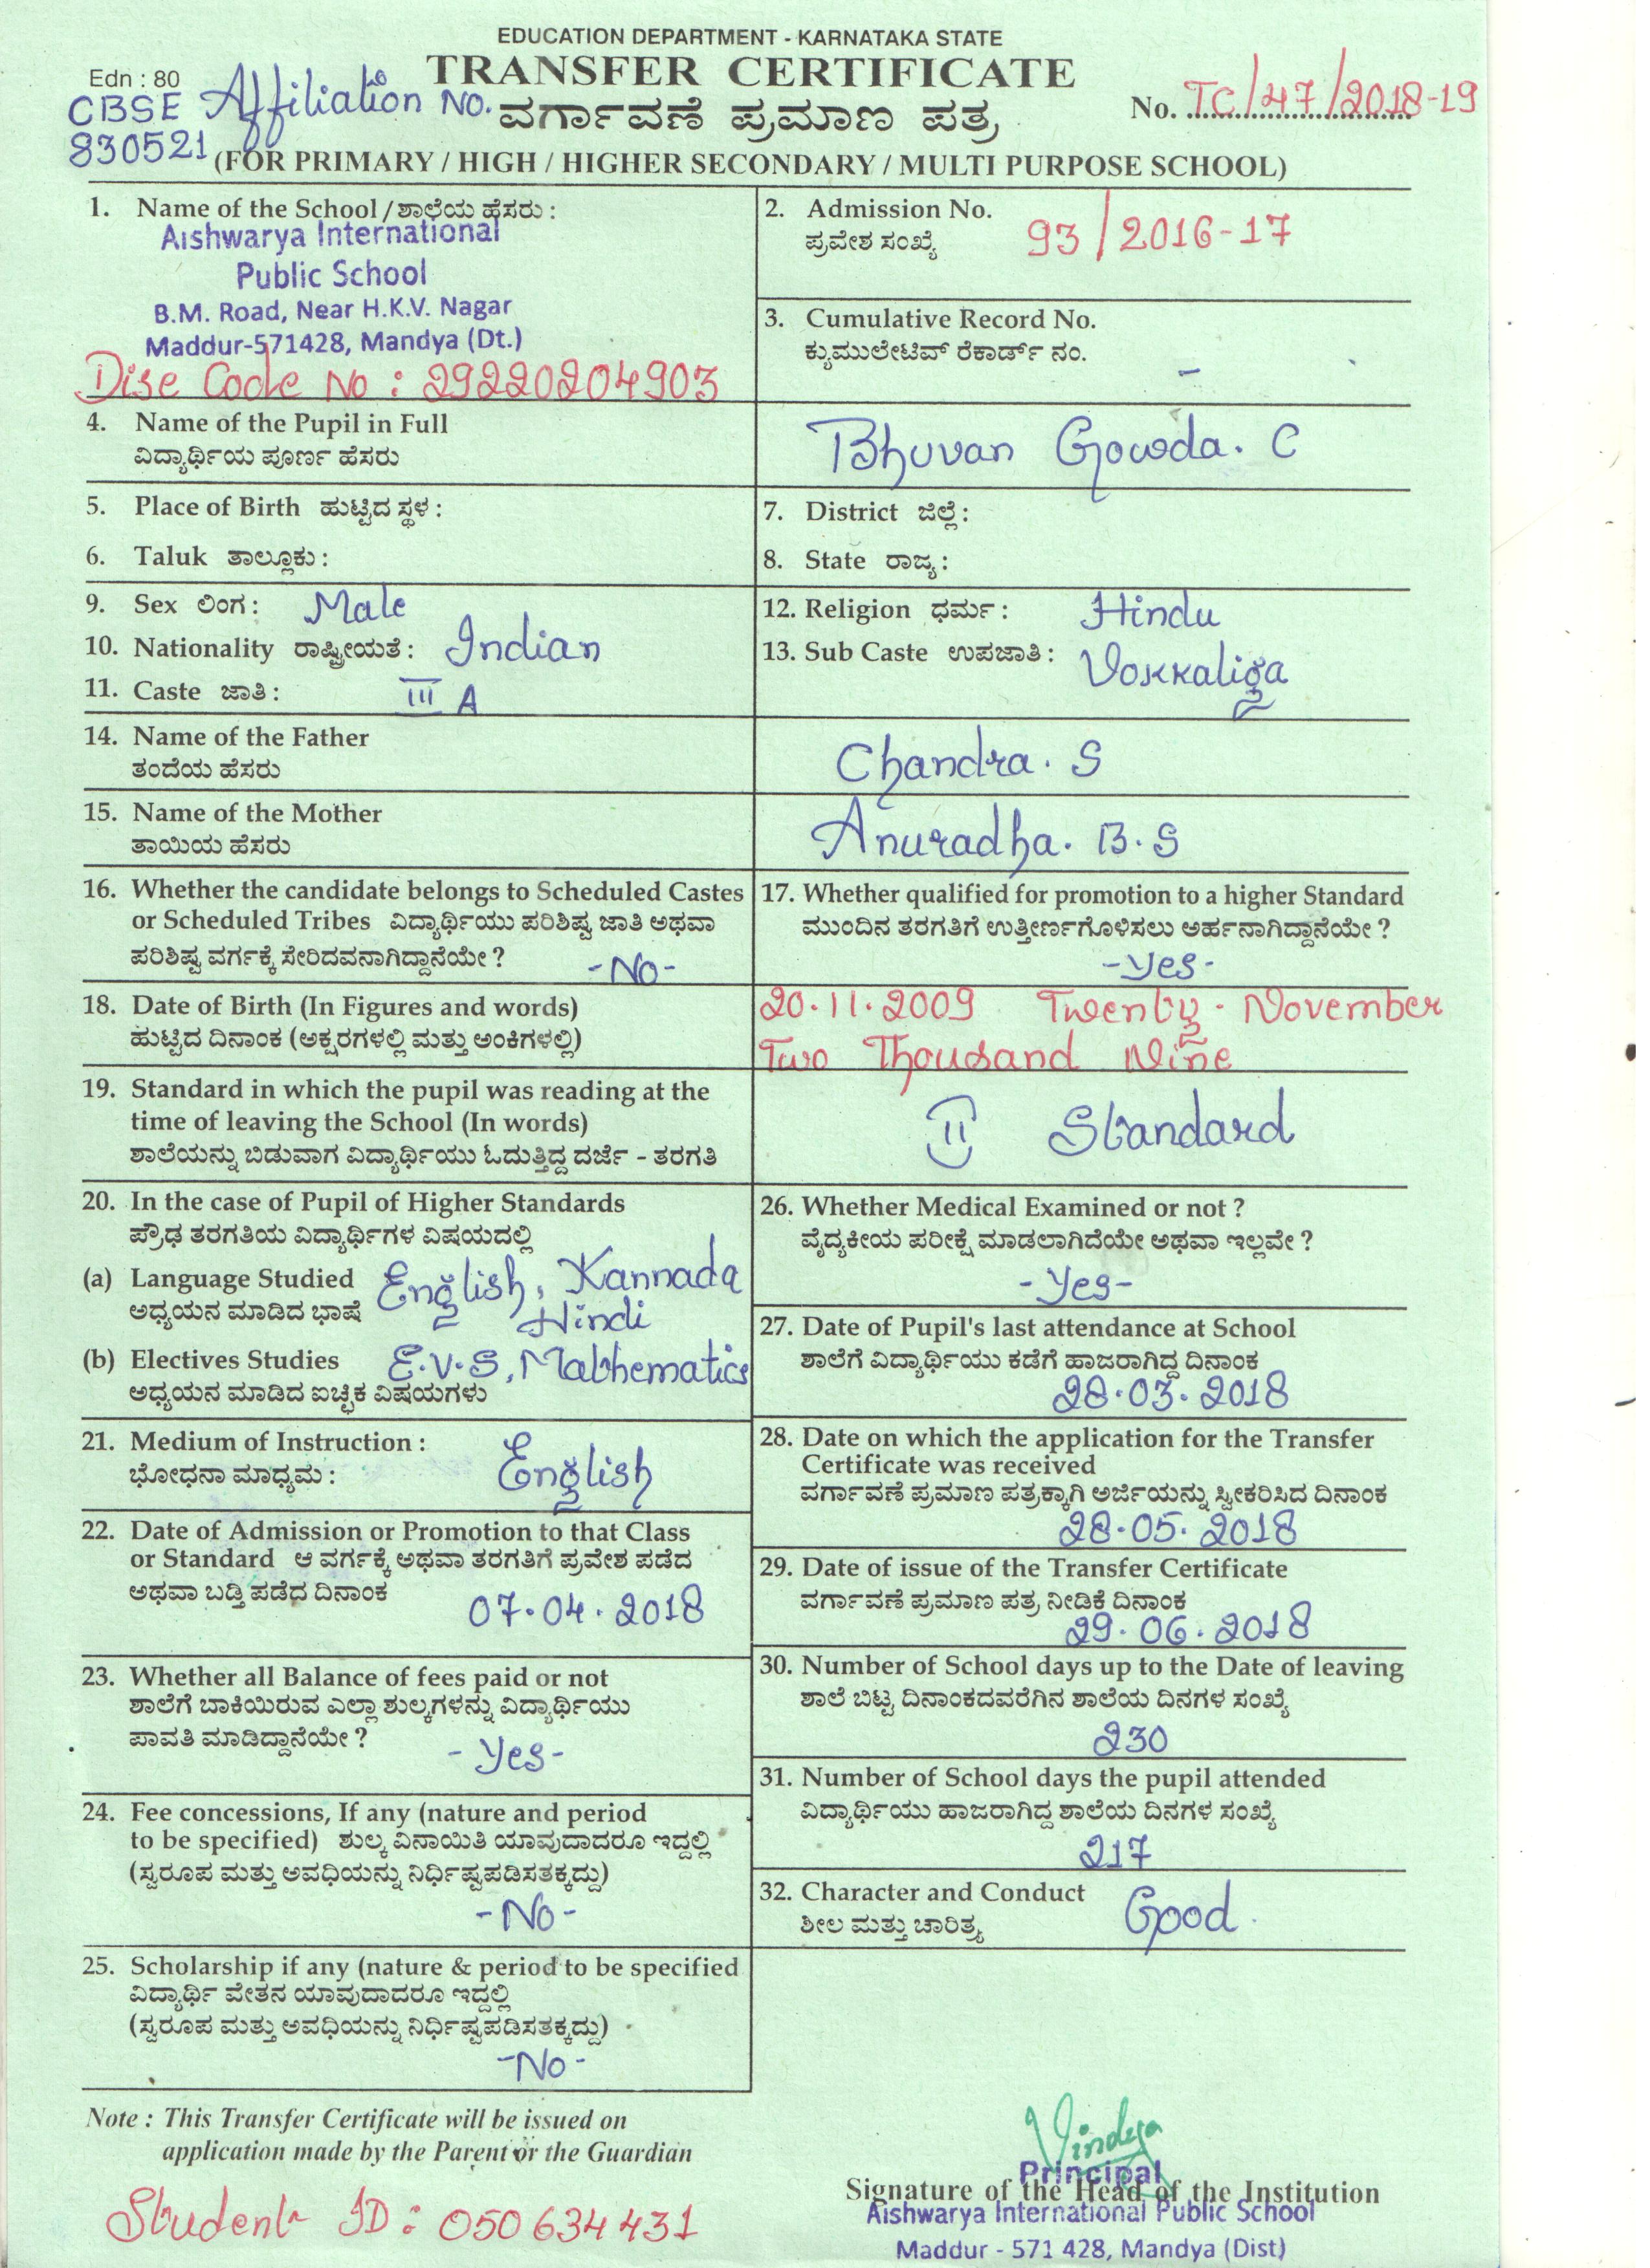 EDUCATION DEPARTMENT - KARNATAKA STATE
Edn : 80
TRANSFER CERTIFICATE
CBSE Affiliation No.
830521
ವರ್ಗಾವಣೆ ಪ್ರಮಾಣ ಪತ್ರ
No. TC/47/2018-19
(FOR PRIMARY / HIGH / HIGHER SECONDARY / MULTI PURPOSE SCHOOL)
1. Name of the School / ಶಾಲೆಯ ಹೆಸರು :
Aishwarya International
Public School
B.M. Road, Near H.K.V. Nagar
Maddur-571428, Mandya (Dt.)
Dise Code No : 29220204903
2. Admission No.
ಪ್ರವೇಶ ಸಂಖ್ಯೆ 93/2016-17
3. Cumulative Record No.
ಕ್ಯುಮುಲೇಟಿವ್ ರೆಕಾರ್ಡ್ ನಂ. -
4. Name of the Pupil in Full
ವಿದ್ಯಾರ್ಥಿಯ ಪೂರ್ಣ ಹೆಸರು
Bhuvan Gowda. C
5. Place of Birth ಹುಟ್ಟಿದ ಸ್ಥಳ :
6. Taluk ತಾಲ್ಲೂಕು :
7. District ಜಿಲ್ಲೆ :
8. State ರಾಜ್ಯ :
9. Sex ಲಿಂಗ : Male
10. Nationality ರಾಷ್ಟ್ರೀಯತೆ : Indian
11. Caste ಜಾತಿ : III A
12. Religion ಧರ್ಮ : Hindu
13. Sub Caste ಉಪಜಾತಿ : Vokkaliga
14. Name of the Father
ತಂದೆಯ ಹೆಸರು
Chandra. S
15. Name of the Mother
ತಾಯಿಯ ಹೆಸರು
Anuradha. B. S
16. Whether the candidate belongs to Scheduled Castes
or Scheduled Tribes ವಿದ್ಯಾರ್ಥಿಯು ಪರಿಶಿಷ್ಟ ಜಾತಿ ಅಥವಾ
ಪರಿಶಿಷ್ಟ ವರ್ಗಕ್ಕೆ ಸೇರಿದವನಾಗಿದ್ದಾನೆಯೇ ? -No-
17. Whether qualified for promotion to a higher Standard
ಮುಂದಿನ ತರಗತಿಗೆ ಉತ್ತೀರ್ಣಗೊಳಿಸಲು ಅರ್ಹನಾಗಿದ್ದಾನೆಯೇ ?
-Yes-
18. Date of Birth (In Figures and words)
ಹುಟ್ಟಿದ ದಿನಾಂಕ (ಅಕ್ಷರಗಳಲ್ಲಿ ಮತ್ತು ಅಂಕಿಗಳಲ್ಲಿ)
20.11.2009 Twenty - November
Two Thousand Nine
19. Standard in which the pupil was reading at the
time of leaving the School (In words)
ಶಾಲೆಯನ್ನು ಬಿಡುವಾಗ ವಿದ್ಯಾರ್ಥಿಯು ಓದುತ್ತಿದ್ದ ದರ್ಜೆ - ತರಗತಿ
II Standard
20. In the case of Pupil of Higher Standards
ಪ್ರೌಢ ತರಗತಿಯ ವಿದ್ಯಾರ್ಥಿಗಳ ವಿಷಯದಲ್ಲಿ
(a) Language Studied English, Kannada
ಅಧ್ಯಯನ ಮಾಡಿದ ಭಾಷೆ Hindi
(b) Electives Studies E.V.S, Mathematics
ಅಧ್ಯಯನ ಮಾಡಿದ ಐಚ್ಛಿಕ ವಿಷಯಗಳು
21. Medium of Instruction : English
ಭೋಧನಾ ಮಾಧ್ಯಮ :
22. Date of Admission or Promotion to that Class
or Standard ಆ ವರ್ಗಕ್ಕೆ ಅಥವಾ ತರಗತಿಗೆ ಪ್ರವೇಶ ಪಡೆದ
ಅಥವಾ ಬಡ್ತಿ ಪಡೆದ ದಿನಾಂಕ 07.04.2018
23. Whether all Balance of fees paid or not
ಶಾಲೆಗೆ ಬಾಕಿಯಿರುವ ಎಲ್ಲಾ ಶುಲ್ಕಗಳನ್ನು ವಿದ್ಯಾರ್ಥಿಯು
ಪಾವತಿ ಮಾಡಿದ್ದಾನೆಯೇ ? -Yes-
24. Fee concessions, If any (nature and period
to be specified) ಶುಲ್ಕ ವಿನಾಯಿತಿ ಯಾವುದಾದರೂ ಇದ್ದಲ್ಲಿ
(ಸ್ವರೂಪ ಮತ್ತು ಅವಧಿಯನ್ನು ನಿರ್ಧಿಷ್ಟಪಡಿಸತಕ್ಕದ್ದು)
-No-
25. Scholarship if any (nature & period to be specified
ವಿದ್ಯಾರ್ಥಿ ವೇತನ ಯಾವುದಾದರೂ ಇದ್ದಲ್ಲಿ
(ಸ್ವರೂಪ ಮತ್ತು ಅವಧಿಯನ್ನು ನಿರ್ಧಿಷ್ಟಪಡಿಸತಕ್ಕದ್ದು)
-No-
26. Whether Medical Examined or not ?
ವೈದ್ಯಕೀಯ ಪರೀಕ್ಷೆ ಮಾಡಲಾಗಿದೆಯೇ ಅಥವಾ ಇಲ್ಲವೇ ?
-Yes-
27. Date of Pupil's last attendance at School
ಶಾಲೆಗೆ ವಿದ್ಯಾರ್ಥಿಯು ಕಡೆಗೆ ಹಾಜರಾಗಿದ್ದ ದಿನಾಂಕ
28.03.2018
28. Date on which the application for the Transfer
Certificate was received
ವರ್ಗಾವಣೆ ಪ್ರಮಾಣ ಪತ್ರಕ್ಕಾಗಿ ಅರ್ಜಿಯನ್ನು ಸ್ವೀಕರಿಸಿದ ದಿನಾಂಕ
28.05.2018
29. Date of issue of the Transfer Certificate
ವರ್ಗಾವಣೆ ಪ್ರಮಾಣ ಪತ್ರ ನೀಡಿಕೆ ದಿನಾಂಕ
29.06.2018
30. Number of School days up to the Date of leaving
ಶಾಲೆ ಬಿಟ್ಟ ದಿನಾಂಕದವರೆಗಿನ ಶಾಲೆಯ ದಿನಗಳ ಸಂಖ್ಯೆ
230
31. Number of School days the pupil attended
ವಿದ್ಯಾರ್ಥಿಯು ಹಾಜರಾಗಿದ್ದ ಶಾಲೆಯ ದಿನಗಳ ಸಂಖ್ಯೆ
217
32. Character and Conduct Good
ಶೀಲ ಮತ್ತು ಚಾರಿತ್ರ್ಯ
Note : This Transfer Certificate will be issued on
application made by the Parent or the Guardian
Student ID : 050634431
Vindya
Principal
Signature of the Head of the Institution
Aishwarya International Public School
Maddur - 571 428, Mandya (Dist)